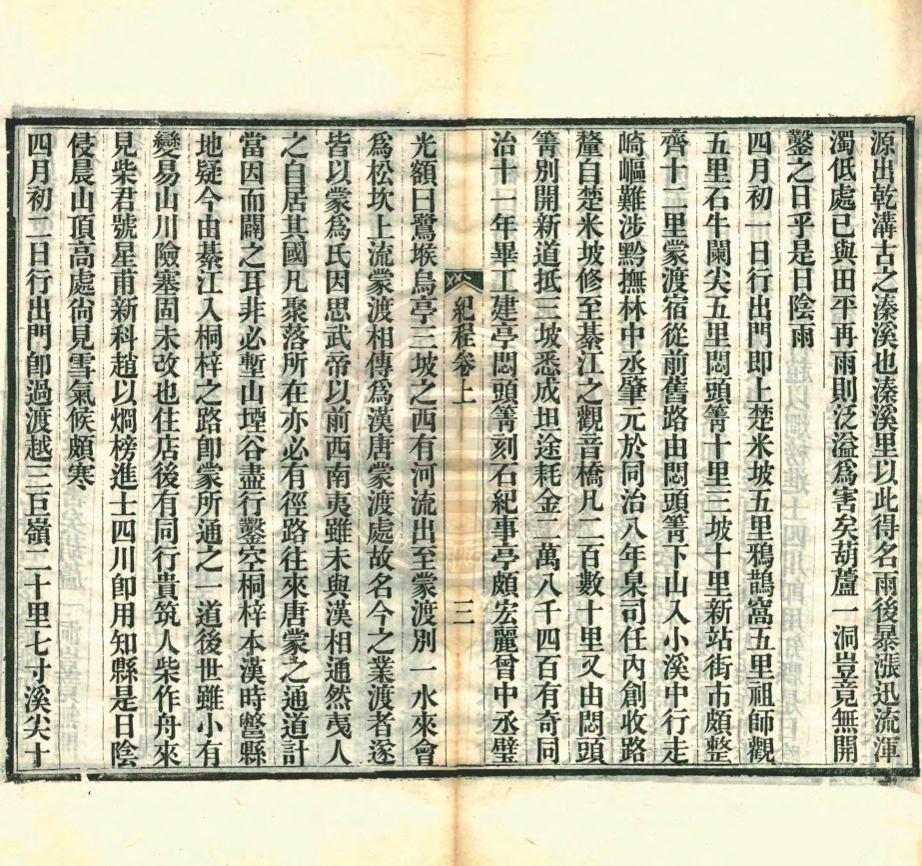 源出乾溝古之溱溪也溱溪里以此得名雨後暴漲迅流渾
濁低處已與田平再雨則泛溢爲害矣葫蘆一洞豈竟無開
鑿之日乎是日陰雨
四月初一日行出門即上楚米坡五里鴉鵲窩五里祖師觀
五里石牛闌尖五里悶頭箐十里三坡十里新站街市頗整
齊十二里蒙渡宿從前舊路由悶頭箐下山入小溪中行走
崎嶇難涉黔撫林中丞肇元於同治八年臬司任內創收路
釐自楚米坡修至綦江之觀音橋凡二百數十里又由悶頭
箐別開新道抵三坡悉成坦途耗金二萬八千四百有奇同
治十一年畢工建亭悶頭箐刻石紀事亭頗宏麗曾中丞璧
紀程卷上
三
光額曰鷺堠烏亭三坡之西有河流出至蒙渡別一水來會
爲松坎上流蒙渡相傳爲漢唐蒙渡處故名今之業渡者遂
皆以蒙爲氏因思武帝以前西南夷雖未與漢相通然夷人
之自居其國凡聚落所在亦必有徑路往來唐蒙之通道計
當因而闢之耳非必塹山堙谷盡行鑿空桐梓本漢時鄨縣
地疑今由綦江入桐梓之路即蒙所通之一道後世雖小有
變易山川險塞固未改也住店後有同行貴筑人柴作舟來
見柴君號星甫新科趙以烱榜進士四川即用知縣是日陰
侵晨山頂高處尙見雪氣候頗寒
四月初二日行出門即過渡越三巨嶺二十里七寸溪尖十